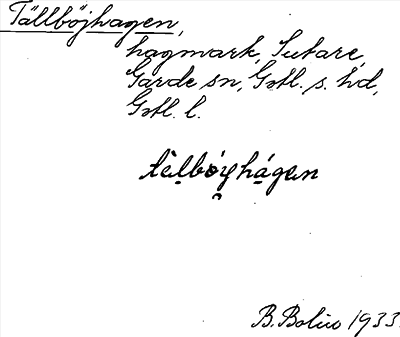 Tällböjhagen,
hagmark, Sutare,
Garde sn, Gotl. s. hd,
Gotl. l.
tèlbɷyhágen
B. Bolin 1933.